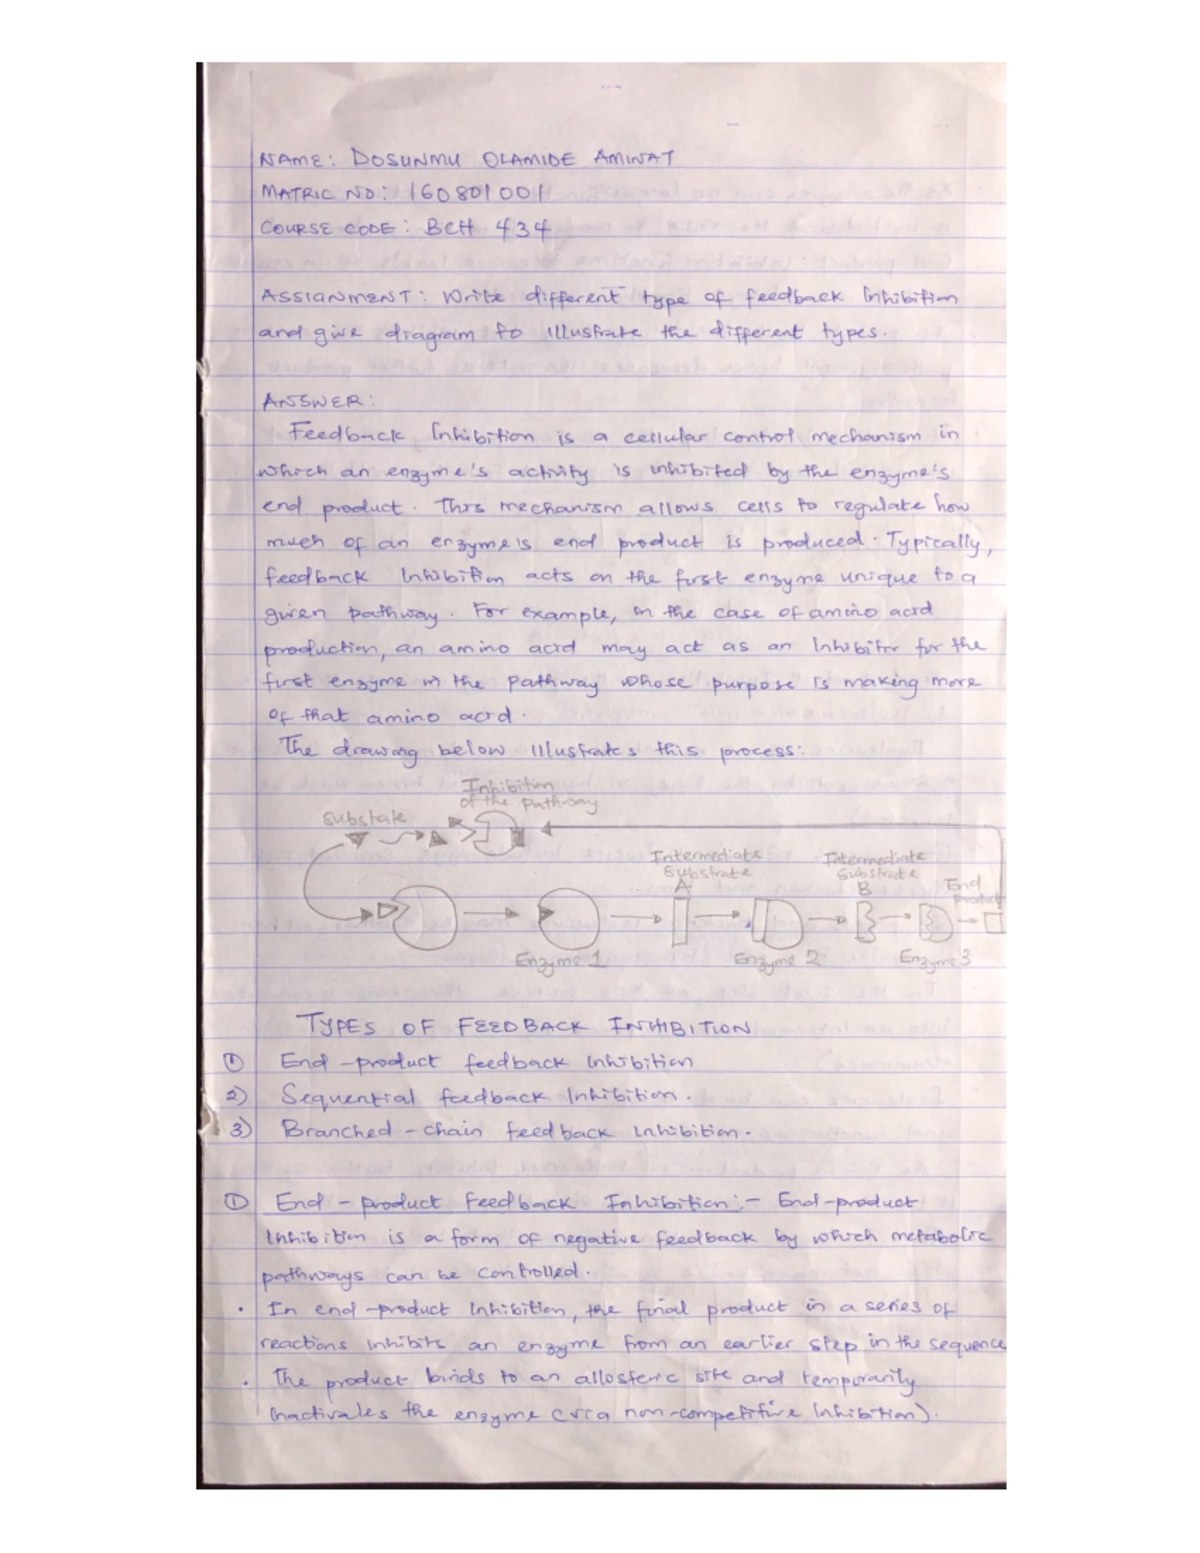 NAME: DOSUNMU OLAMIDE AMINAT
MATRIC NO: 160801001
COURSE CODE: BCH 434
ASSIGNMENT: Write different type of feedback Inhibition
and give diagram to illustrate the different types.
ANSWER:
Feedback Inhibition is a cellular control mechanism in
which an enzyme's activity is inhibited by the enzyme's
end product. This mechanism allows cells to regulate how
much of an enzyme's end product is produced. Typically,
feedback Inhibition acts on the first enzyme unique to a
given pathway. For example, in the case of amino acid
production, an amino acid may act as an Inhibitor for the
first enzyme in the pathway whose purpose is making more
of that amino acid.
The drawing below illustrates this process:
Inhibition
of the pathway
Substate
Intermediate
Substrate
A
Intermediate
Substrate
B
End
product
Enzyme 1
Enzyme 2
Enzyme 3
TYPES OF FEEDBACK INHIBITION
1) End-product feedback Inhibition
2) Sequential feedback Inhibition.
3) Branched-chain feedback Inhibition.
1) End-product Feedback Inhibition:- End-product
Inhibition is a form of negative feedback by which metabolic
pathways can be controlled.
· In end-product Inhibition, the final product in a series of
reactions inhibits an enzyme from an earlier step in the sequence
· The product binds to an allosteric site and temporarily
Inactivates the enzyme (via non-competitive Inhibition).